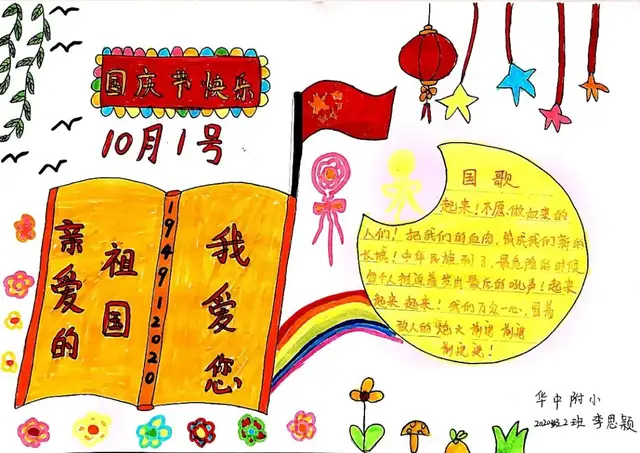 国庆节快乐
10月1号
亲爱的
祖国
194912020
我爱您
国歌
起来!不愿做奴隶的
人们!把我们的血肉,筑成我们新的
长城!中华民族到了,最危险的时候
人被迫着发出最后的吼声!起来
起来 起来!我们万众一心,冒着
敌人的炮火 前进 前进
前进进!
华中附小
2班 李思颖